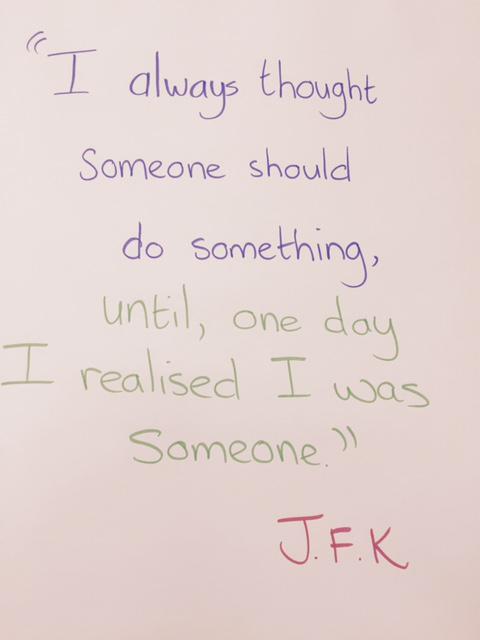 "I always thought
Someone should
do something,
until, one day
I realised I was
Someone."
J.F.K